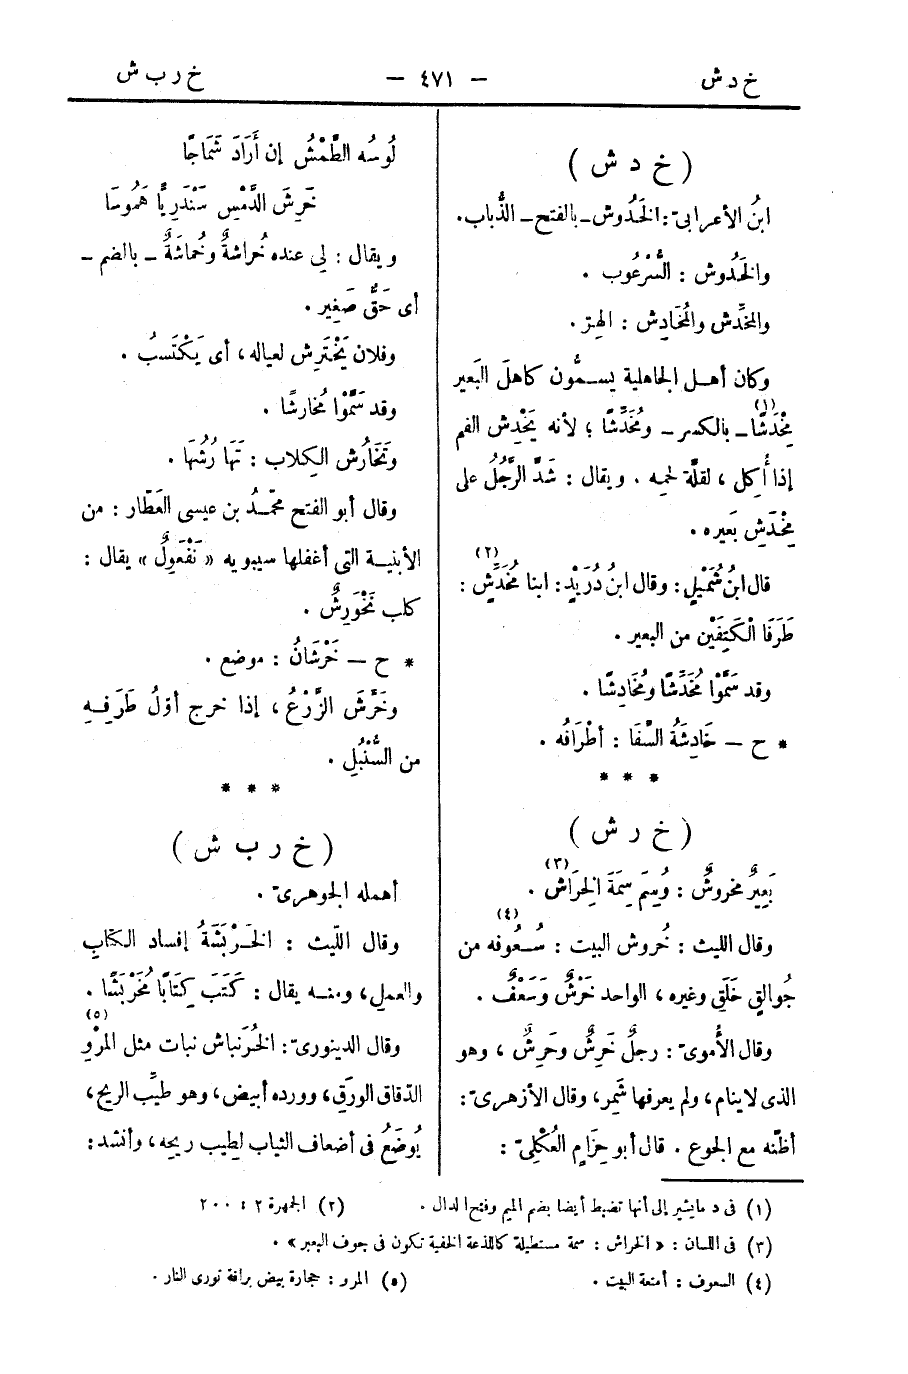 خ د ش
— ٤٧١ —
خ ر ب ش
( خ د ش )
ابنُ الأعرابىّ: الخَدُوش ـ بالفتح ـ الذُّباب.
والخَدُوش : السُّرْعُوب .
والمخَدِّش والمُخَادِش : الهِرّ .
وكان أهـل الجاهلية يسـمُّون كاهلَ البَعير
مِخْدَشًا(١) ـ بالكسر ـ ومُخَدِّشًا ؛ لأنه يَخْدِش الفم
إذا أُكِل ، لقلَّة لحمِه . ويقال : شَدَّ الرَّجُلُ على
مِخْدَشِ بَعيره .
قال ابنُ شُمَيْلٍ : وقال ابنُ دُرَيْدٍ : ابنا مُخَدَّشٍ(٢) :
طَرَفَا الْكَتِفَيْن من البعير .
وقد سَمَّوْا مُخَدِّشًا ومُخَادِشًا .
* ح — خَادِشَةُ السَّفَا : أطْرَافُه .
* * *
( خ ر ش )
بَعِيرٌ مخروشٌ : وُسِمَ سِمَةَ الخِرَاش(٣) .
وقال الليث : خُروش البيت : سُـعُوفه(٤) من
جُوالقٍ خَلَقٍ وغيره ، الواحد خَرْشٌ وَسَعْفٌ .
وقال الأُموىّ : رجلٌ خَرِشٌ وحَرِشٌ ، وهو
الذى لاينام ، ولم يعرفها شَمِر ، وقال الأزهرىّ :
أظنّه مع الجوع . قال أبو حِزَامٍ العُكْلِىّ :
لُوسُه الطَّمْشُ إن أَرَادَ شَمَاجًا
خَرِشَ الدَّمْسِ سَنْدَرِيًّا هَمُوسَا
ويقال : لى عنده خُراشةٌ وخُماشَةٌ ـ بالضم ـ
أى حَقٌّ صَغِير .
وفلان يَخْتَرِش لعياله ، أى يَكْتَسبُ .
وقد سَمَّوْا مُخارشًا .
وتَخَارُش الكلاب : تَهَارُشُهَا .
وقال أبو الفتح محمّـدُ بن عيسى العَطّار : من
الأبنيـة التى أغفلها سيبويه « نَفْعَوِلٌ » يقال :
كلب نَخْوَرِشٌ .
* ح — خَرْشَانُ : موضع .
وخَرَّشَ الزَّرْعُ ، إذا خرج أوّلُ طَرَفِـهِ
من السُّنْبُلِ .
* * *
( خ ر ب ش )
أهمله الجوهرىّ .
وقال اللّيث : الخَـرْبَشَةُ إفساد الكتابِ
والعملِ ، ومنـه يقال : كَتَبَ كِتَابًا مُخَرْبَشًا .
وقال الدينورىّ : الخُرَنباش نبات مثل المَرْوِ(٥)
الدّقاق الورَقِ ، وورده أبيض ، وهو طيِّب الريح ،
يُوضَعُ فى أضعاف الثياب لطِيب ريحِه ، وأنشد :
(١) فى د مايشير إلى أنها تضبط أيضا بضم الميم وفتح الدال . (٢) الجمهرة ٢ : ٢٠٠
(٣) فى اللسان : « الخراش : سمة مستطيلة كاللذعة الخفية تكون فى جوف البعير » .
(٤) السعوف : أمتعة البيت . (٥) المرو : حجارة بيض براقة تورى النار .